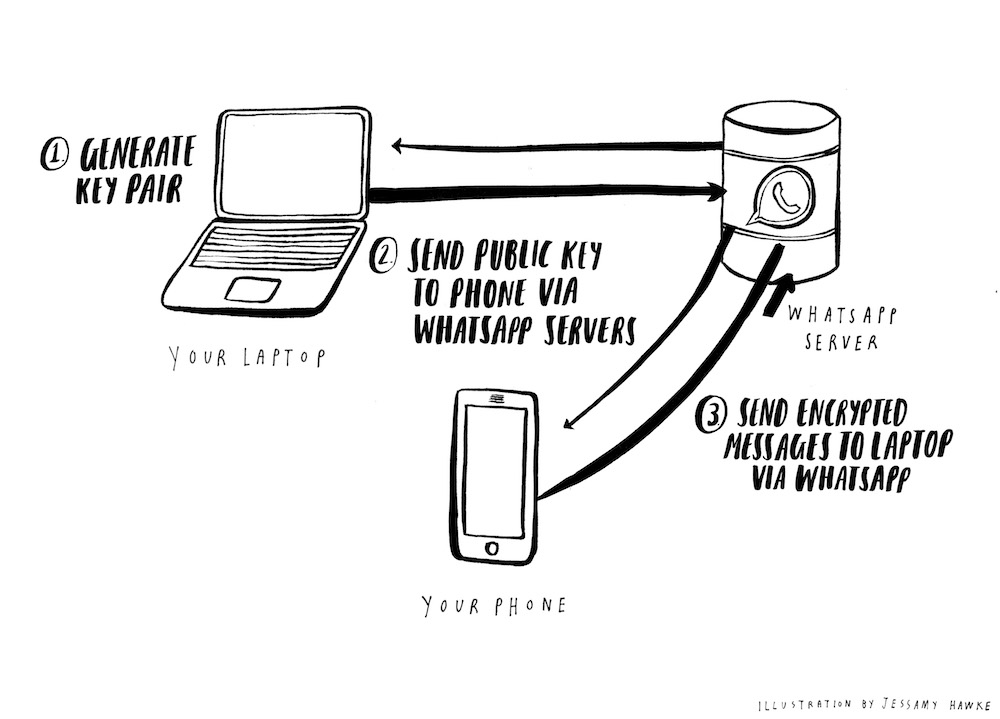 1. GENERATE
KEY PAIR
2. SEND PUBLIC KEY
TO PHONE VIA
WHATSAPP SERVERS
WHATSAPP
SERVER
YOUR LAPTOP
3. SEND ENCRYPTED
MESSAGES TO LAPTOP
VIA WHATSAPP
YOUR PHONE
ILLUSTRATION BY JESSAMY HAWKE